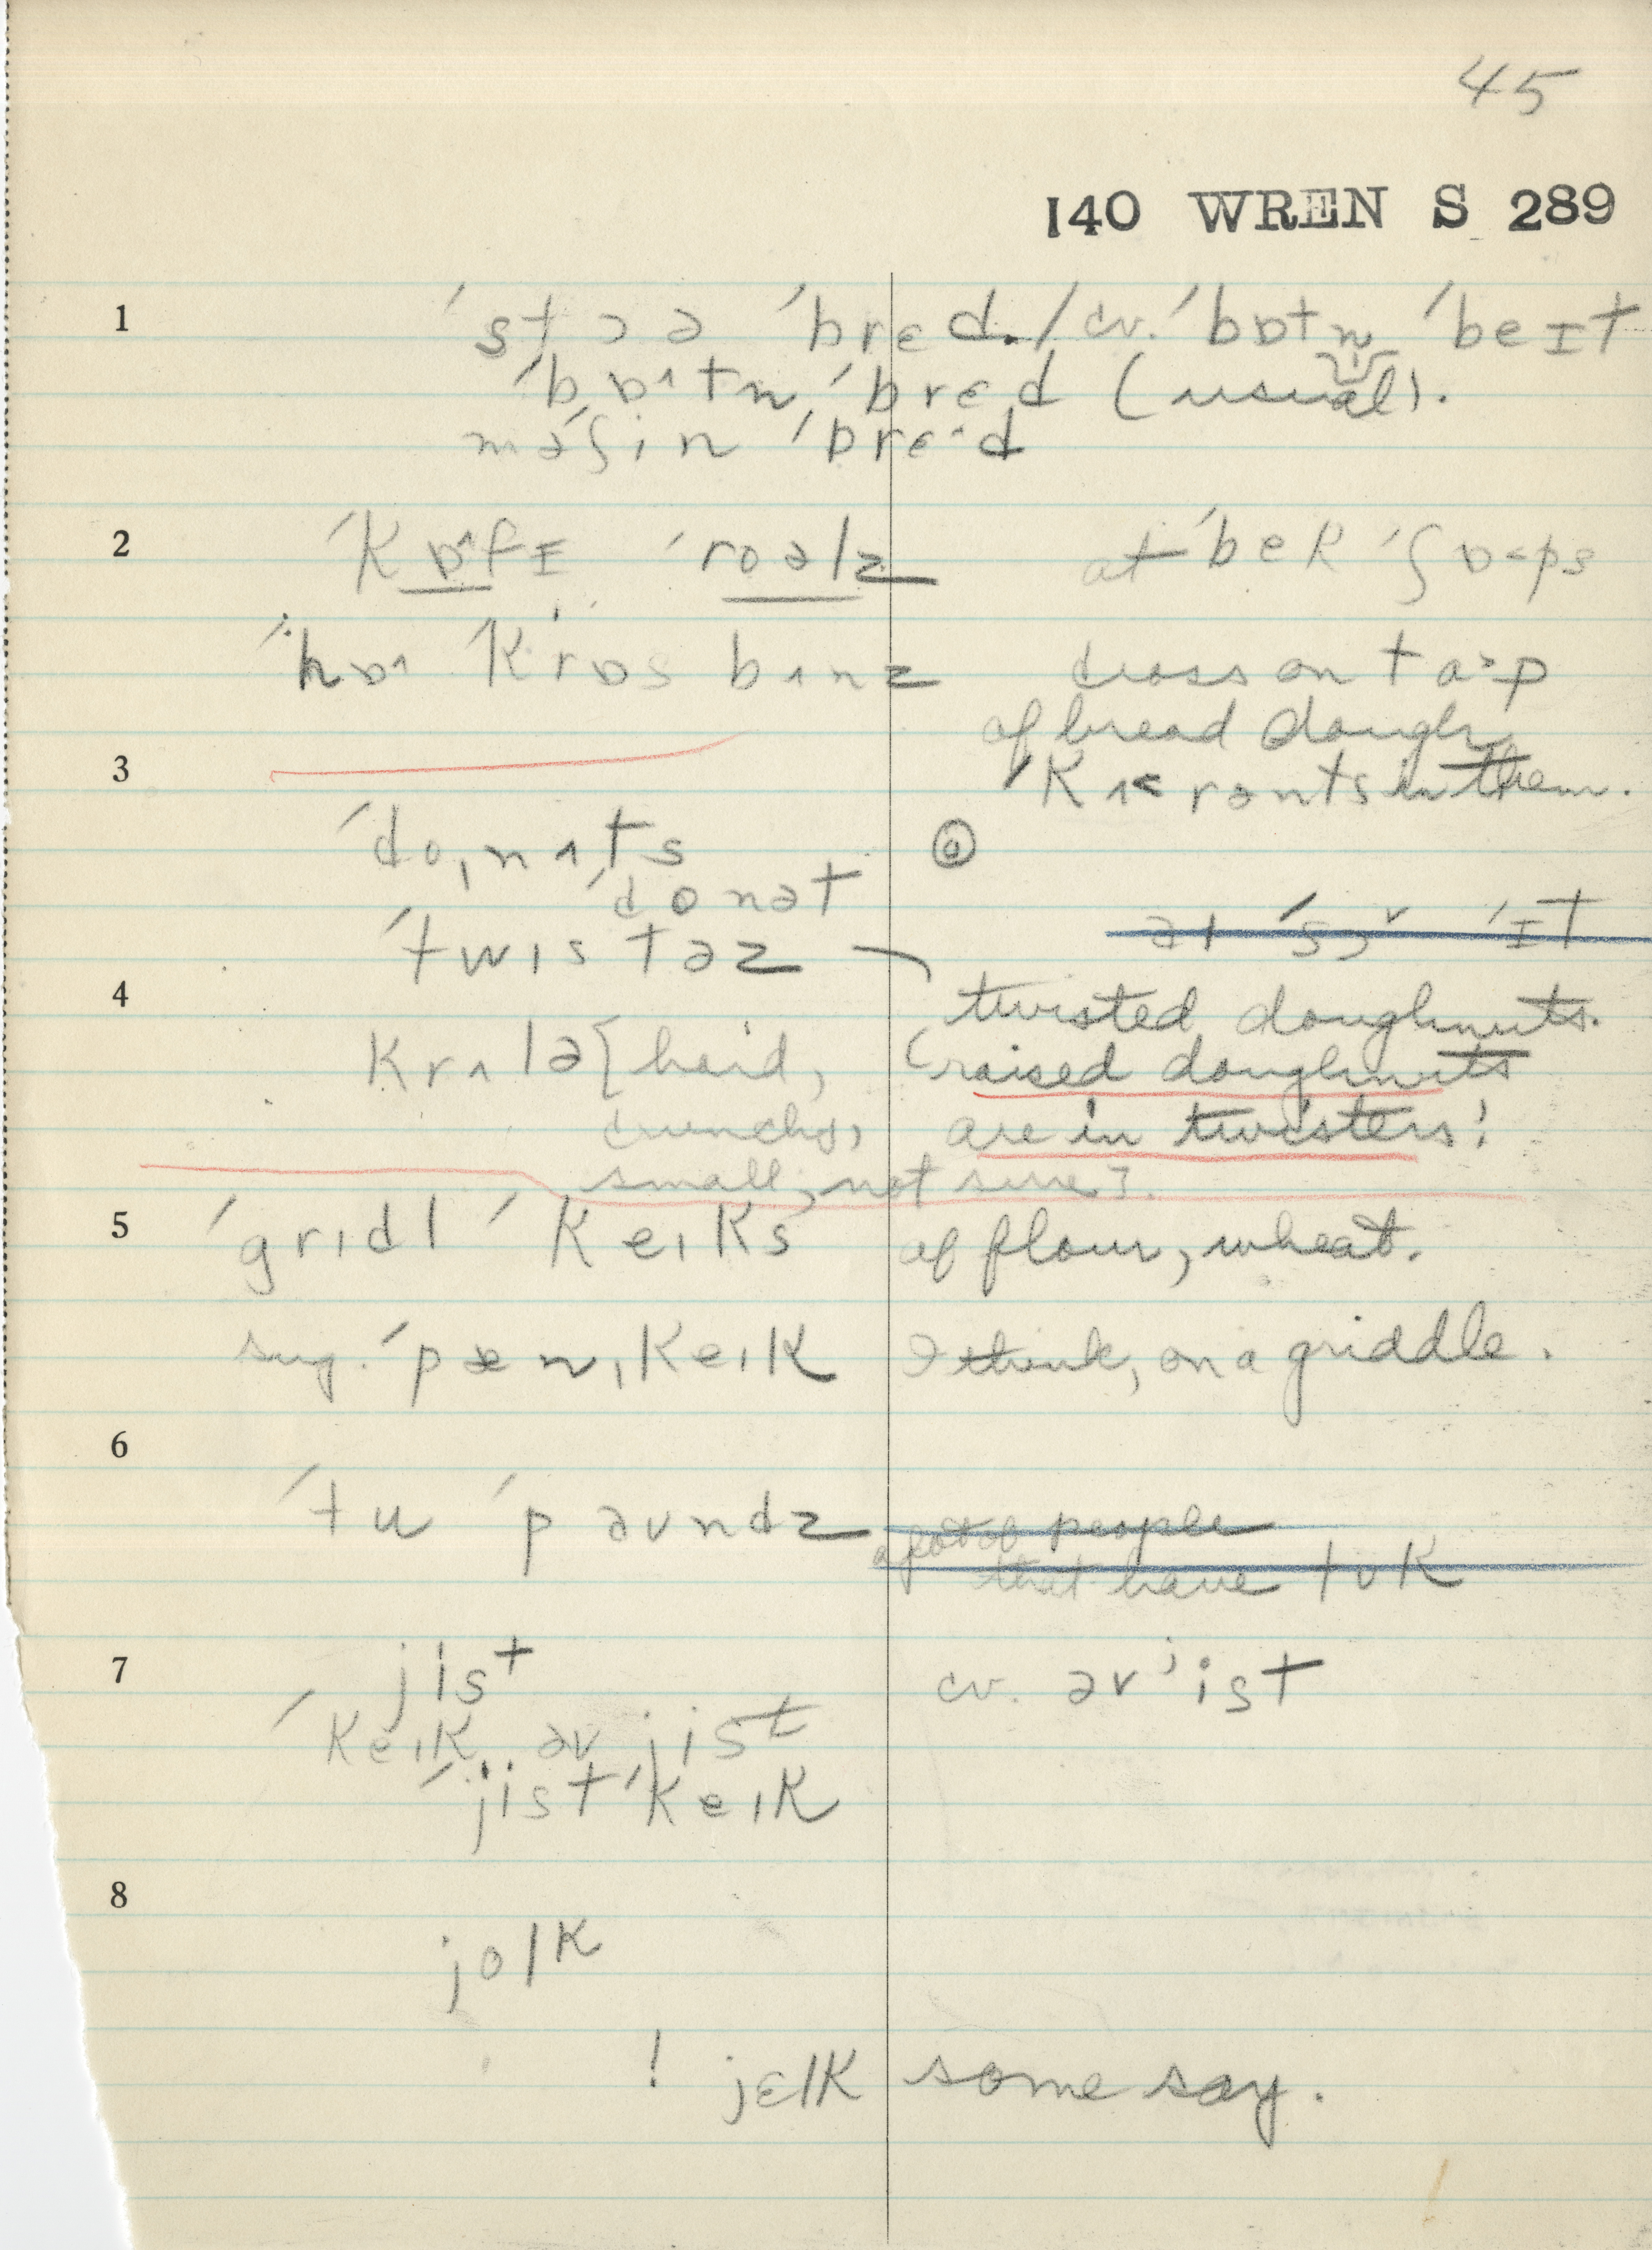 45
140 WREN S 289
1 ˈstɔə ˈbrɛd. / cv. ˈbɒtn̩ ˈbeɪt
ˈbɒ^tn̩ ˈbrɛd (usual).
məˈʃin ˈbrɛ·d
2 ˈkɒ^fɪ ˈroəlz at ˈbek ˈʃɒ<ps
ˈhɒ^ ˈkrɒs bʌnz cross on ta>p
of bread dough
3 ˈkʌ<rənts in them.
ˈdoˌnʌts ⓐ
ˈdonət
ˈtwɪstəz twisted doughnuts.
4 krʌlə [hard, (raised doughnuts
crunchy, are in twisters!
small, not sure].
5 ˈgrɪdl ˈkeɪks of flour, wheat.
sug. ˈpænˌkeɪk I think, on a griddle.
6
ˈtu ˈpəʊndz a lot of people
that have tʊk
7 jist cv. əvˈist
ˈkeɪk əv jist
ˈjist ˈkeɪk
8
jolk
! jɛlk some say.